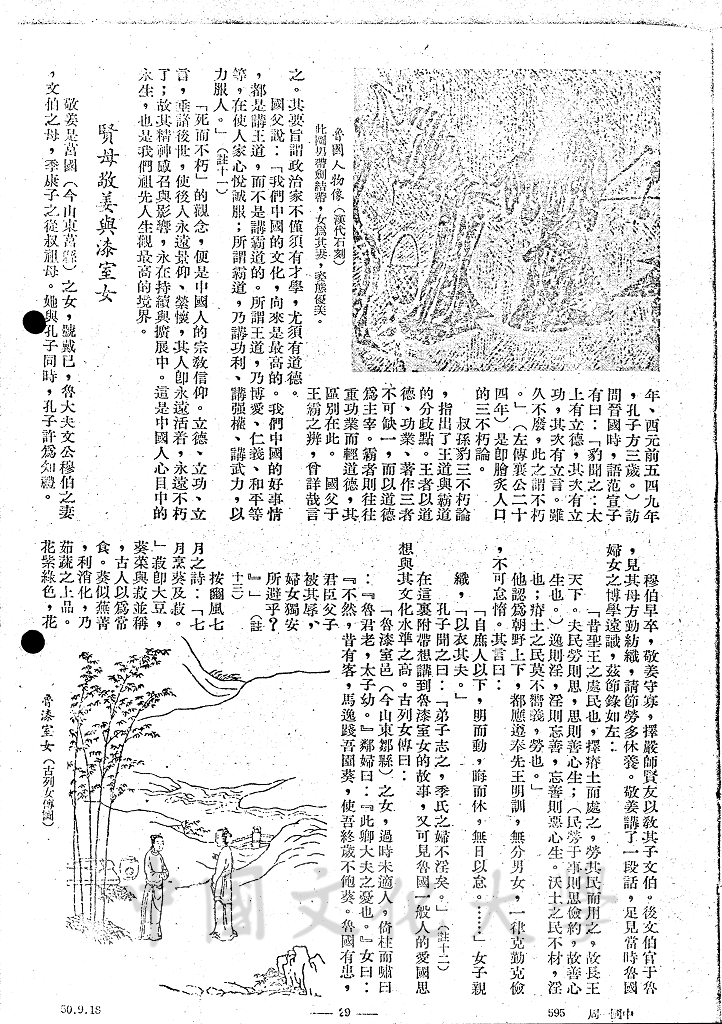 年、西元前五四九年
，孔子方三歲。）訪
問晉國時，語范宣子
有曰：「豹聞之：太
上有立德，其次有立
功，其次有立言。雖
久不廢，此之謂不朽
。」（左傳襄公二十
四年）是卽膾炙人口
的三不朽論。
叔孫豹三不朽論
，指出了王道與霸道
的分歧點。王者以道
德、功業、著作三者
不可缺一，而以道德
爲主宰。霸者則往往
重功業而輕道德，其
區別在此。　國父于
王霸之辨，曾詳哉言
魯國人物像（漢代石刻）
此圖男帶劍結帶，女爲其妻，姿態優美。
之。其要旨謂政治家不僅須有才學，尤須有道德。
國父說：「我們中國的文化，向來是最高的。我們中國的好事情
，都是講王道，而不是講霸道的。所謂王道，乃博愛、仁義、和平等
等，在使人家心悅誠服；所謂霸道，乃講功利、講强權、講武力，以
力服人。」（註十一）
「死而不朽」的觀念，便是中國人的宗教信仰。立德、立功、立
言，垂諸後世，使後人永遠景仰、縈懷，其人卽永遠活着，永遠不朽
了；故其精神感召與影響，永在持續與擴展中。這是中國人心目中的
永生，也是我們祖先人生觀最高的境界。
賢母敬姜與漆室女
敬姜是莒國（今山東莒縣）之女，號戴己，魯大夫文公穆伯之妻
，文伯之母，季康子之從叔祖母。她與孔子同時，孔子許爲知禮。
穆伯早卒，敬姜守寡，擇嚴師賢友以教其子文伯。後文伯官于魯
，見其母方勤紡織，請節勞多休養。敬姜講了一段話，足見當時魯國
婦女之博學遠識，茲節錄如左：
「昔聖王之處民也，擇瘠土而處之，勞其民而用之，故長王
天下。夫民勞則思，思則善心生；（民勞于事則思儉約，故善心
生也。）逸則淫，淫則忘善，忘善則惡心生。沃土之民不材，淫
也；瘠土之民莫不嚮義，勞也。」
他認爲朝野上下，都應遵奉先王明訓，無分男女，一律克勤克儉
，不可怠惰。其言曰：
「自庶人以下，明而動，晦而休，無日以怠。……」女子親
織，「以衣其夫。」
孔子聞之曰：「弟子志之，季氏之婦不淫矣。」（註十二）
在這裏附帶想講到魯漆室女的故事，又可見魯國一般人的愛國思
想與其文化水準之高。古列女傳曰：
「魯漆室邑（今山東鄒縣）之女，過時未適人，倚柱而嘯曰
：『魯君老，太子幼。』鄰婦曰：『此卿大夫之憂也。』女曰：
『不然，昔有客，馬逸踐吾園葵，使吾終歲不飽葵。魯國有患，
君臣父子
被其辱，
婦女獨安
所避乎？
』」（註
十三）
按豳風七
月之詩：「七
月烹葵及菽。
」菽卽大豆，
葵菜與菽並稱
，古人以爲常
食。葵似蕪菁
，利消化，乃
茹蔬之上品。
花紫綠色，花
魯漆室女（古列女傳圖）
中國文化大學
50.9.18
— 29 —
595　中國一周